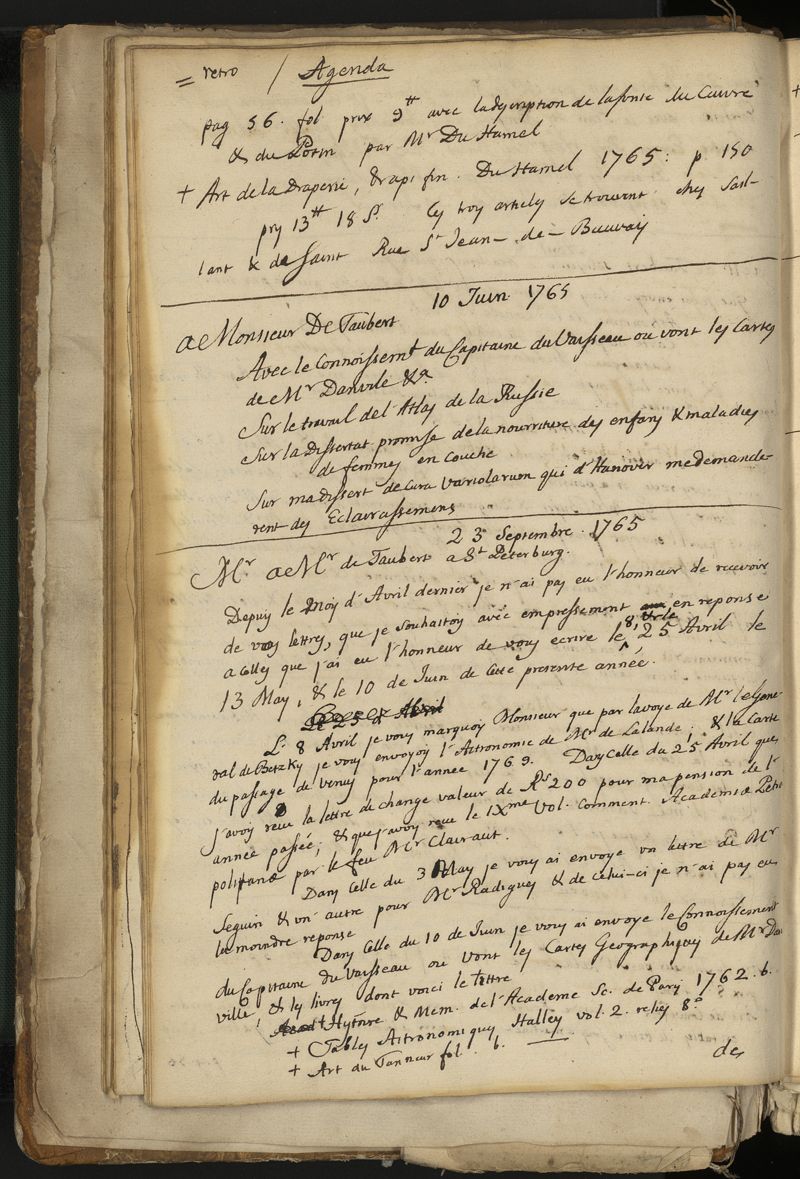 = retro / Agenda
pag 56. fol prix 9 tt avec la description de la fonte du Cuivre
& du Potin par Mr Du Hamel
+ Art de la Draperie, drap fin. Du Hamel 1765: p 150
prix 13 tt 18 S. Ces trois articles se trouvent chez Sail-
lant & de Saint Rue St Jean-de-Beauvais
10 Juin 1765
a Monsieur De Taubert
Avec le Connoissemt du Capitaine du Vaisseau ou vont les Cartes
de Mr Danvile &a.
Sur le travail de l'Atlas de la Russie
Sur la dissertat promise de la nourriture des enfans & maladies
de femmes en couche
Sur ma dissert de cura variolarum qui d'Hanover me demande-
rent des Eclairassemens
23 Septembre. 1765
Mr a Mr de Taubert a St Peterburg.
Depuis le Mois d'Avril dernier je n'ai pas eu l'honneur de recevoir
de vos lettres, que je souhaitois avec empressement en reponse
a celles que j'ai eu l'honneur de vous ecrire le 8, 25 Avril le
13 May, & le 10 de Juin de cette presente année.
Le 25 d'Abril
L. 8 Avril je vous marquois Monsieur que par la voye de Mr le Gene-
ral de Betzky je vous envoyois l'Astronomie de Mr de Lalande; & la Carte
du passage de Venus pour l'annee 1769. Dans Celle du 25 Avril que
j'avois reçu la lettre de change valeur de Rs 200 pour ma pension de l'
année passée; & que j'avois reçu le IXme Vol. Comment. Academiæ Petro
politanæ par le feu Mr Clairaut.
Dans Celle du 3 May je vous ai envoye un lettre de Mr
Seguin & un' autre pour Mr Radiguey & de celui-ci je n'ai pas eu
la moindre reponse
Dans Celle du 10 de Juin je vous ai envoye le Connoissement
du Capitaine du Vaisseau ou vont les Cartes Geographiques de Mr Dan
ville, & les livres dont voici le tittre
Hystoire & Mem. de l'Academe Sc. de Paris 1762. b.
+ Tables Astronomiques Halley vol. 2. relies 8.o
+ Art du Tanneur fol. b.
de